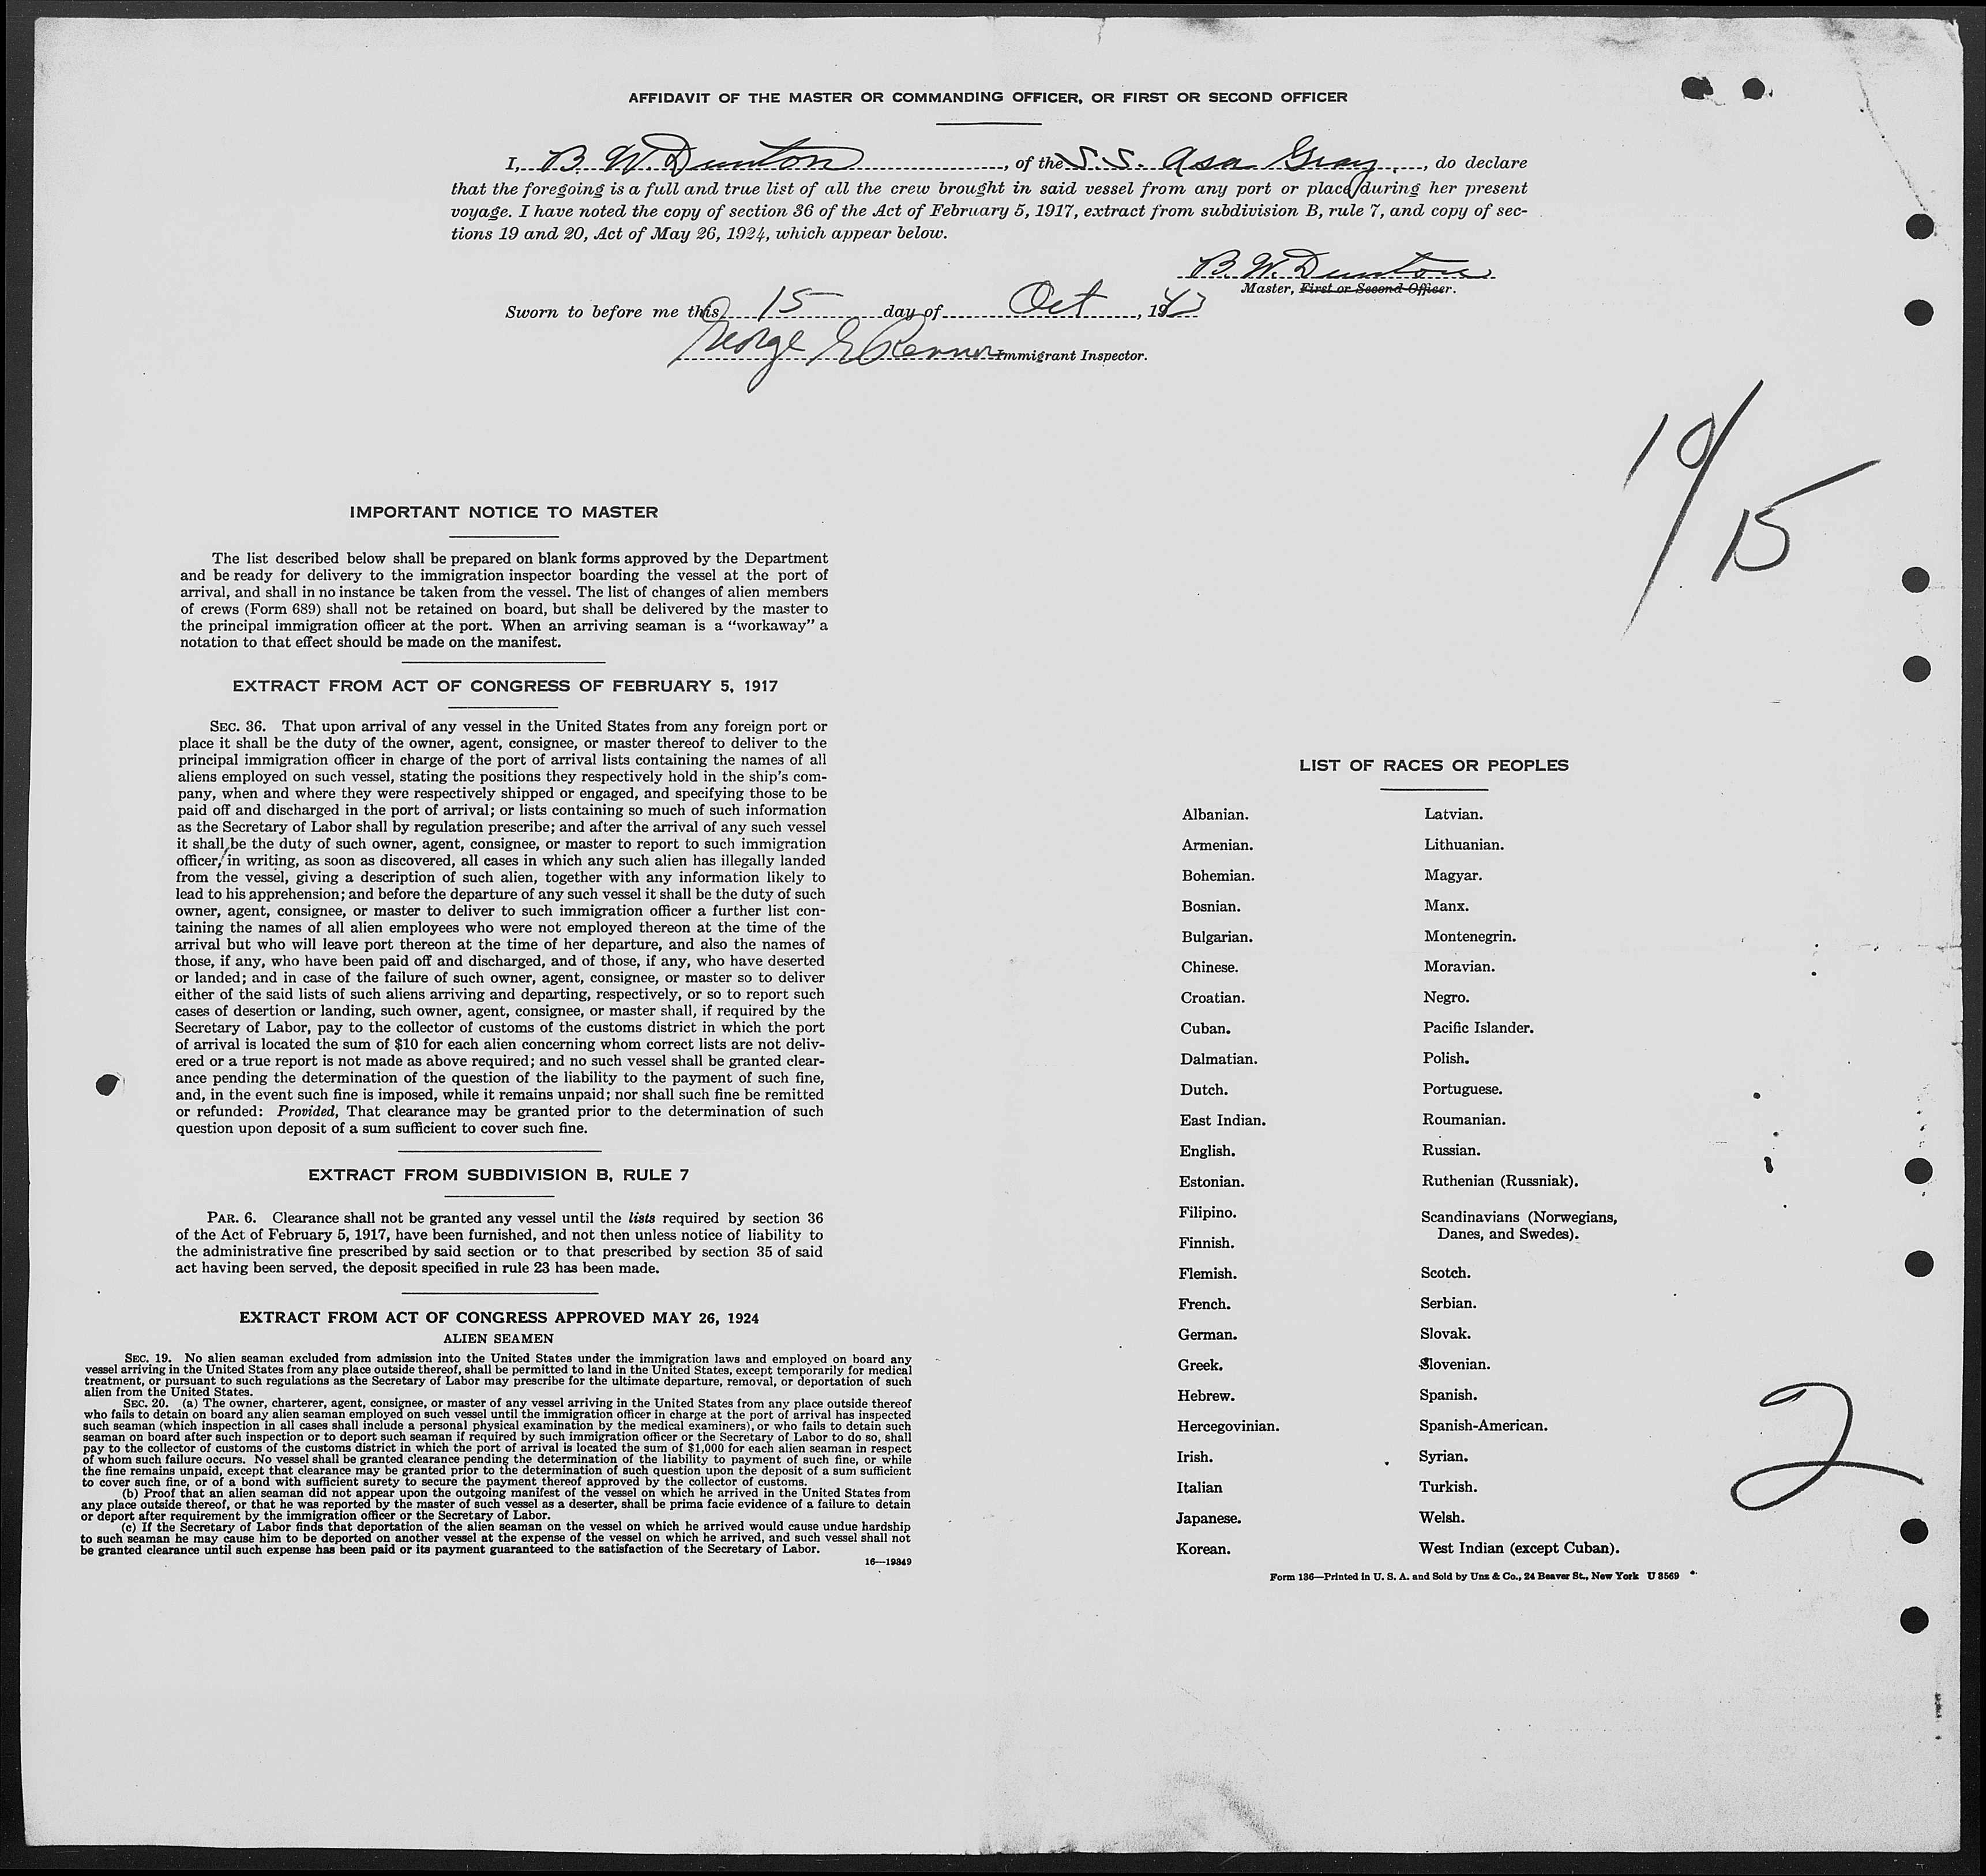 AFFIDAVIT OF THE MASTER OR COMMANDING OFFICER, OR FIRST OR SECOND OFFICER
I, B. W. Dunton, of the S.S. Asa Gray, do declare
that the foregoing is a full and true list of all the crew brought in said vessel from any port or place during her present
voyage. I have noted the copy of section 36 of the Act of February 5, 1917, extract from subdivision B, rule 7, and copy of sec-
tions 19 and 20, Act of May 26, 1924, which appear below.
B. W. Dunton
Master, First or Second Officer.
Sworn to before me this 15 day of Oct, 1943
George E Immigrant Inspector.
10/15
IMPORTANT NOTICE TO MASTER
The list described below shall be prepared on blank forms approved by the Department
and be ready for delivery to the immigration inspector boarding the vessel at the port of
arrival, and shall in no instance be taken from the vessel. The list of changes of alien members
of crews (Form 689) shall not be retained on board, but shall be delivered by the master to
the principal immigration officer at the port. When an arriving seaman is a "workaway" a
notation to that effect should be made on the manifest.
EXTRACT FROM ACT OF CONGRESS OF FEBRUARY 5, 1917
SEC. 36. That upon arrival of any vessel in the United States from any foreign port or
place it shall be the duty of the owner, agent, consignee, or master thereof to deliver to the
principal immigration officer in charge of the port of arrival lists containing the names of all
aliens employed on such vessel, stating the positions they respectively hold in the ship's com-
pany, when and where they were respectively shipped or engaged, and specifying those to be
paid off and discharged in the port of arrival; or lists containing so much of such information
as the Secretary of Labor shall by regulation prescribe; and after the arrival of any such vessel
it shall be the duty of such owner, agent, consignee, or master to report to such immigration
officer, in writing, as soon as discovered, all cases in which any such alien has illegally landed
from the vessel, giving a description of such alien, together with any information likely to
lead to his apprehension; and before the departure of any such vessel it shall be the duty of such
owner, agent, consignee, or master to deliver to such immigration officer a further list con-
taining the names of all alien employees who were not employed thereon at the time of the
arrival but who will leave port thereon at the time of her departure, and also the names of
those, if any, who have been paid off and discharged, and of those, if any, who have deserted
or landed; and in case of the failure of such owner, agent, consignee, or master so to deliver
either of the said lists of such aliens arriving and departing, respectively, or so to report such
cases of desertion or landing, such owner, agent, consignee, or master shall, if required by the
Secretary of Labor, pay to the collector of customs of the customs district in which the port
of arrival is located the sum of $10 for each alien concerning whom correct lists are not deliv-
ered or a true report is not made as above required; and no such vessel shall be granted clear-
ance pending the determination of the question of the liability to the payment of such fine,
and, in the event such fine is imposed, while it remains unpaid; nor shall such fine be remitted
or refunded: Provided, That clearance may be granted prior to the determination of such
question upon deposit of a sum sufficient to cover such fine.
EXTRACT FROM SUBDIVISION B, RULE 7
PAR. 6. Clearance shall not be granted any vessel until the lists required by section 36
of the Act of February 5, 1917, have been furnished, and not then unless notice of liability to
the administrative fine prescribed by said section or to that prescribed by section 35 of said
act having been served, the deposit specified in rule 23 has been made.
EXTRACT FROM ACT OF CONGRESS APPROVED MAY 26, 1924
ALIEN SEAMEN
SEC. 19. No alien seaman excluded from admission into the United States under the immigration laws and employed on board any
vessel arriving in the United States from any place outside thereof, shall be permitted to land in the United States, except temporarily for medical
treatment, or pursuant to such regulations as the Secretary of Labor may prescribe for the ultimate departure, removal, or deportation of such
alien from the United States.
SEC. 20. (a) The owner, charterer, agent, consignee, or master of any vessel arriving in the United States from any place outside thereof
who fails to detain on board any alien seaman employed on such vessel until the immigration officer in charge at the port of arrival has inspected
such seaman (which inspection in all cases shall include a personal physical examination by the medical examiners), or who fails to detain such
seaman on board after such inspection or to deport such seaman if required by such immigration officer or the Secretary of Labor to do so, shall
pay to the collector of customs of the customs district in which the port of arrival is located the sum of $1,000 for each alien seaman in respect
of whom such failure occurs. No vessel shall be granted clearance pending the determination of the liability to payment of such fine, or while
the fine remains unpaid, except that clearance may be granted prior to the determination of such question upon the deposit of a sum sufficient
to cover such fine, or of a bond with sufficient surety to secure the payment thereof approved by the collector of customs.
(b) Proof that an alien seaman did not appear upon the outgoing manifest of the vessel on which he arrived in the United States from
any place outside thereof, or that he was reported by the master of such vessel as a deserter, shall be prima facie evidence of a failure to detain
or deport after requirement by the immigration officer or the Secretary of Labor.
(c) If the Secretary of Labor finds that deportation of the alien seaman on the vessel on which he arrived would cause undue hardship
to such seaman he may cause him to be deported on another vessel at the expense of the vessel on which he arrived, and such vessel shall not
be granted clearance until such expense has been paid or its payment guaranteed to the satisfaction of the Secretary of Labor.
16—19849
LIST OF RACES OR PEOPLES
Albanian.
Armenian.
Bohemian.
Bosnian.
Bulgarian.
Chinese.
Croatian.
Cuban.
Dalmatian.
Dutch.
East Indian.
English.
Estonian.
Filipino.
Finnish.
Flemish.
French.
German.
Greek.
Hebrew.
Hercegovinian.
Irish.
Italian
Japanese.
Korean.
Latvian.
Lithuanian.
Magyar.
Manx.
Montenegrin.
Moravian.
Negro.
Pacific Islander.
Polish.
Portuguese.
Roumanian.
Russian.
Ruthenian (Russniak).
Scandinavians (Norwegians,
Danes, and Swedes).
Scotch.
Serbian.
Slovak.
Slovenian.
Spanish.
Spanish-American.
Syrian.
Turkish.
Welsh.
West Indian (except Cuban).
2
Form 136—Printed in U. S. A. and Sold by Unz & Co., 24 Beaver St., New York U 8569